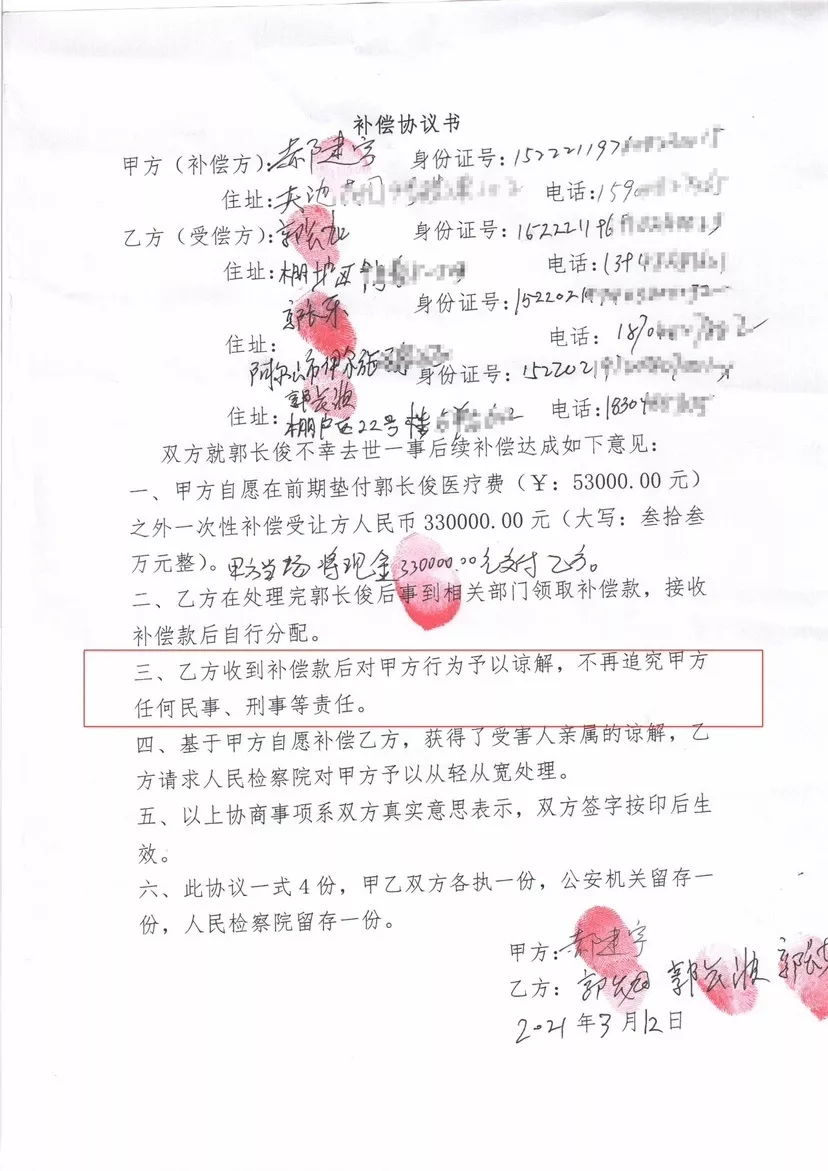 补偿协议书
甲方（补偿方）：郝建宇 身份证号：152221197
住址： 电话：159
乙方（受偿方）：郭 身份证号：152221196
住址：棚户区 电话：1394
郭长乐 身份证号：1522021
住址： 电话：1870
阿尔山市伊尔施 身份证号：152202
住址：棚户区22号楼 电话：18304
双方就郭长俊不幸去世一事后续补偿达成如下意见：
一、甲方自愿在前期垫付郭长俊医疗费（￥：53000.00元）
之外一次性补偿受让方人民币330000.00元（大写：叁拾叁
万元整）。甲方当场将现金330000.00元支付乙方。
二、乙方在处理完郭长俊后事到相关部门领取补偿款，接收
补偿款后自行分配。
三、乙方收到补偿款后对甲方行为予以谅解，不再追究甲方
任何民事、刑事等责任。
四、基于甲方自愿补偿乙方，获得了受害人亲属的谅解，乙
方请求人民检察院对甲方予以从轻从宽处理。
五、以上协商事项系双方真实意思表示，双方签字按印后生
效。
六、此协议一式4份，甲乙双方各执一份，公安机关留存一
份，人民检察院留存一份。
甲方：郝建宇
乙方：郭
2021年3月12日